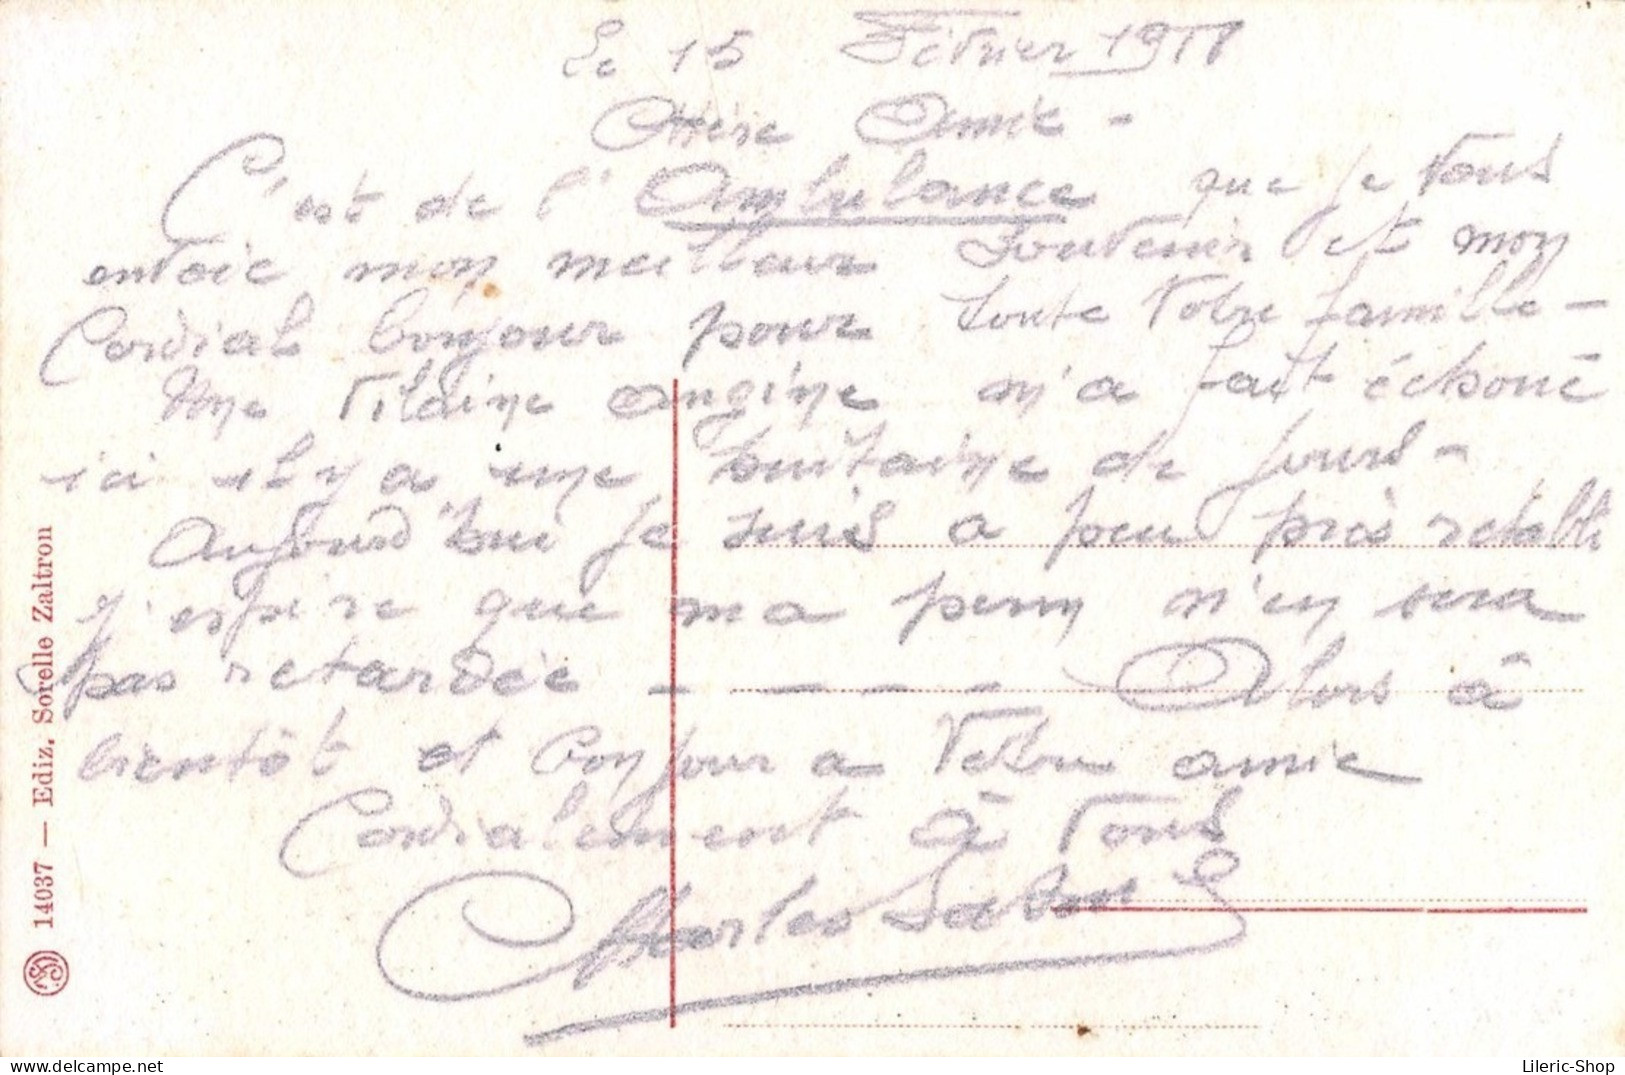 Le 15 Février 19
Chère Amie -
C'est de l'Ambulance que je vous
envoie mon meilleur souvenir et mon
Cordial bonjour pour toute votre famille -
Une vilaine angine m'a fait échoué
ici il y a une huitaine de jours -
Aujourd'hui je suis a peu près rétabli
J'espère que ma perm n'en sera
pas retardée - - - - Alors à
bientôt et bonjour a votre amie
Cordialement à vous
Charles
14037 — Ediz. Sorelle Zaltron
Lileric-Shop